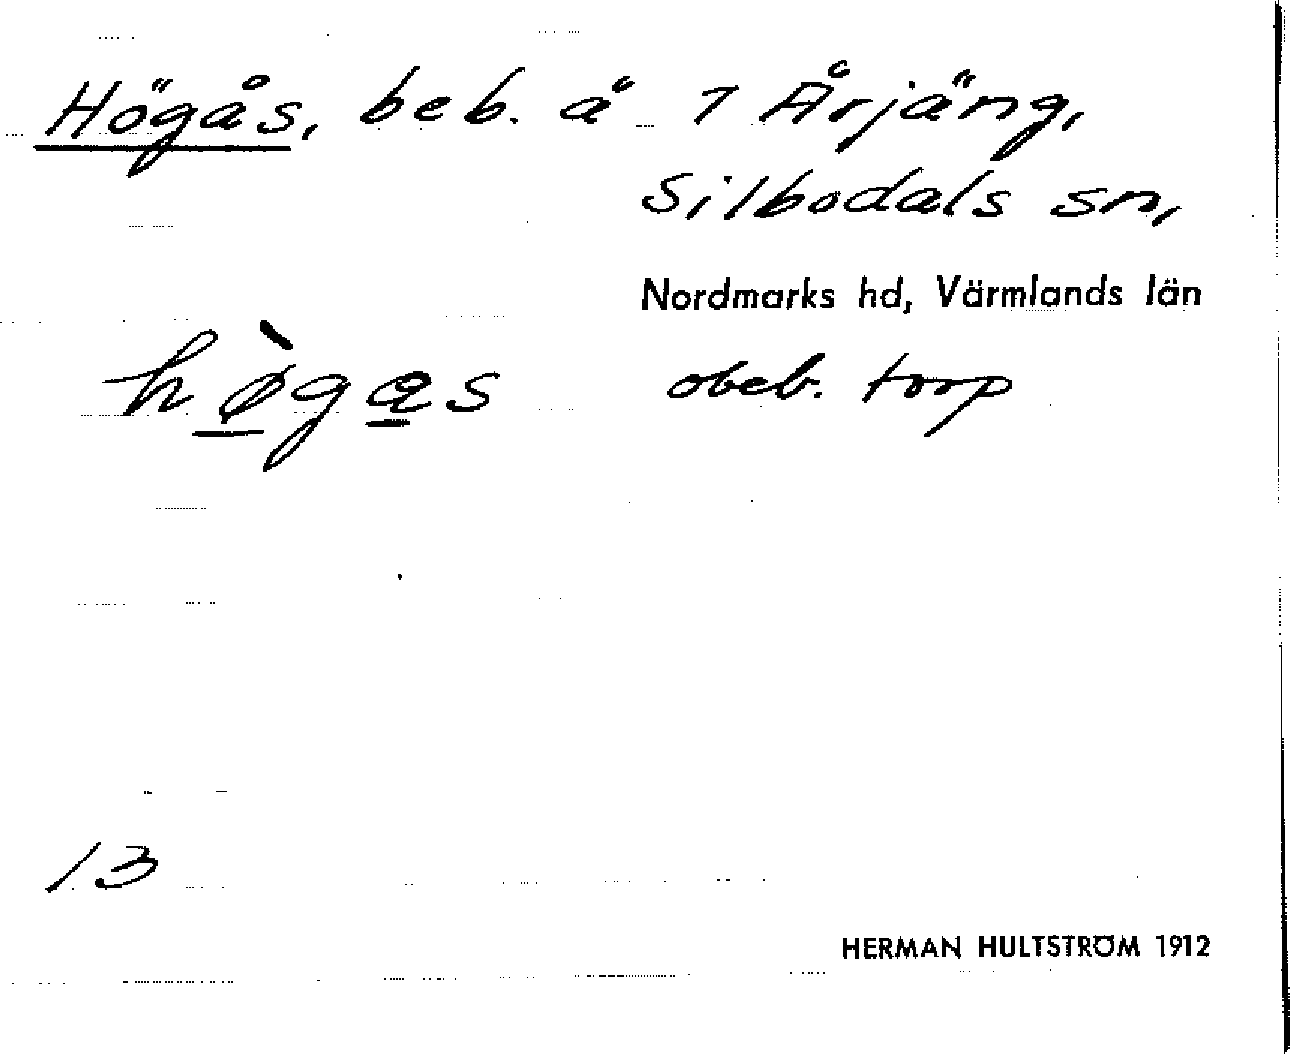 Högås, beb. å 7 Årjäng,
Silbodals sn,
Nordmarks hd, Värmlands län
hø̀gas obeb. torp
13
HERMAN HULTSTRÖM 1912